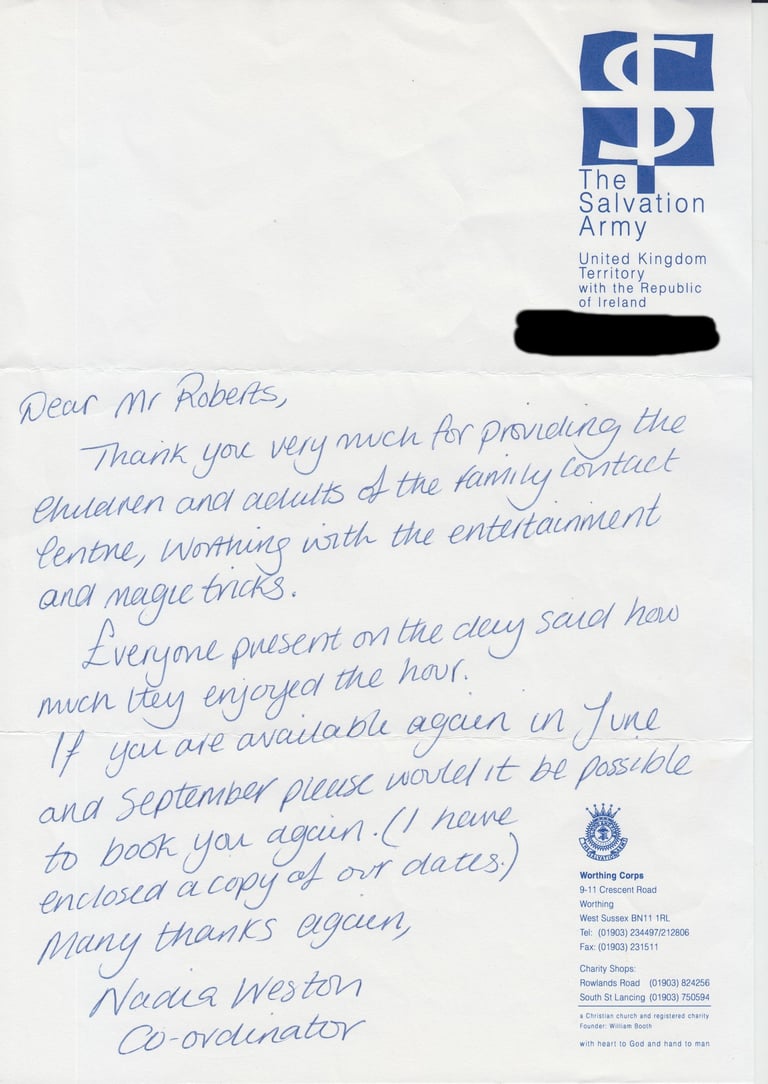 The
Salvation
Army
United Kingdom
Territory
with the Republic
of Ireland
Dear Mr Roberts,
Thank you very much for providing the
children and adults of the family Contact
Centre, Worthing with the entertainment
and magic tricks.
Everyone present on the day said how
much they enjoyed the hour.
If you are available again in June
and September please would it be possible
to book you again. (I have
enclosed a copy of our dates.)
Many thanks again,
Nadia Weston
Co-ordinator
Worthing Corps
9-11 Crescent Road
Worthing
West Sussex BN11 1RL
Tel: (01903) 234497/212806
Fax: (01903) 231511
Charity Shops:
Rowlands Road (01903) 824256
South St Lancing (01903) 750594
a Christian church and registered charity
Founder: William Booth
with heart to God and hand to man